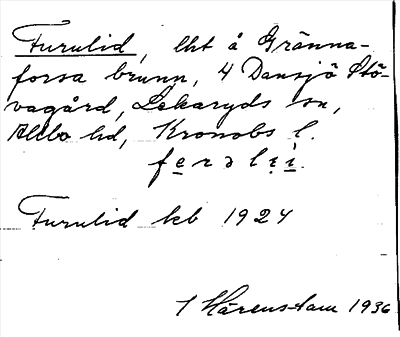 Furulid, lht å Gränna-
forsa brunn, 4 Dansjö Stö-
vagård, Lekaryds sn,
Allbo hd, Kronobs l.
fe̱rəlı̣ì.
Furulid kb 1924
1 Härenstam 1936